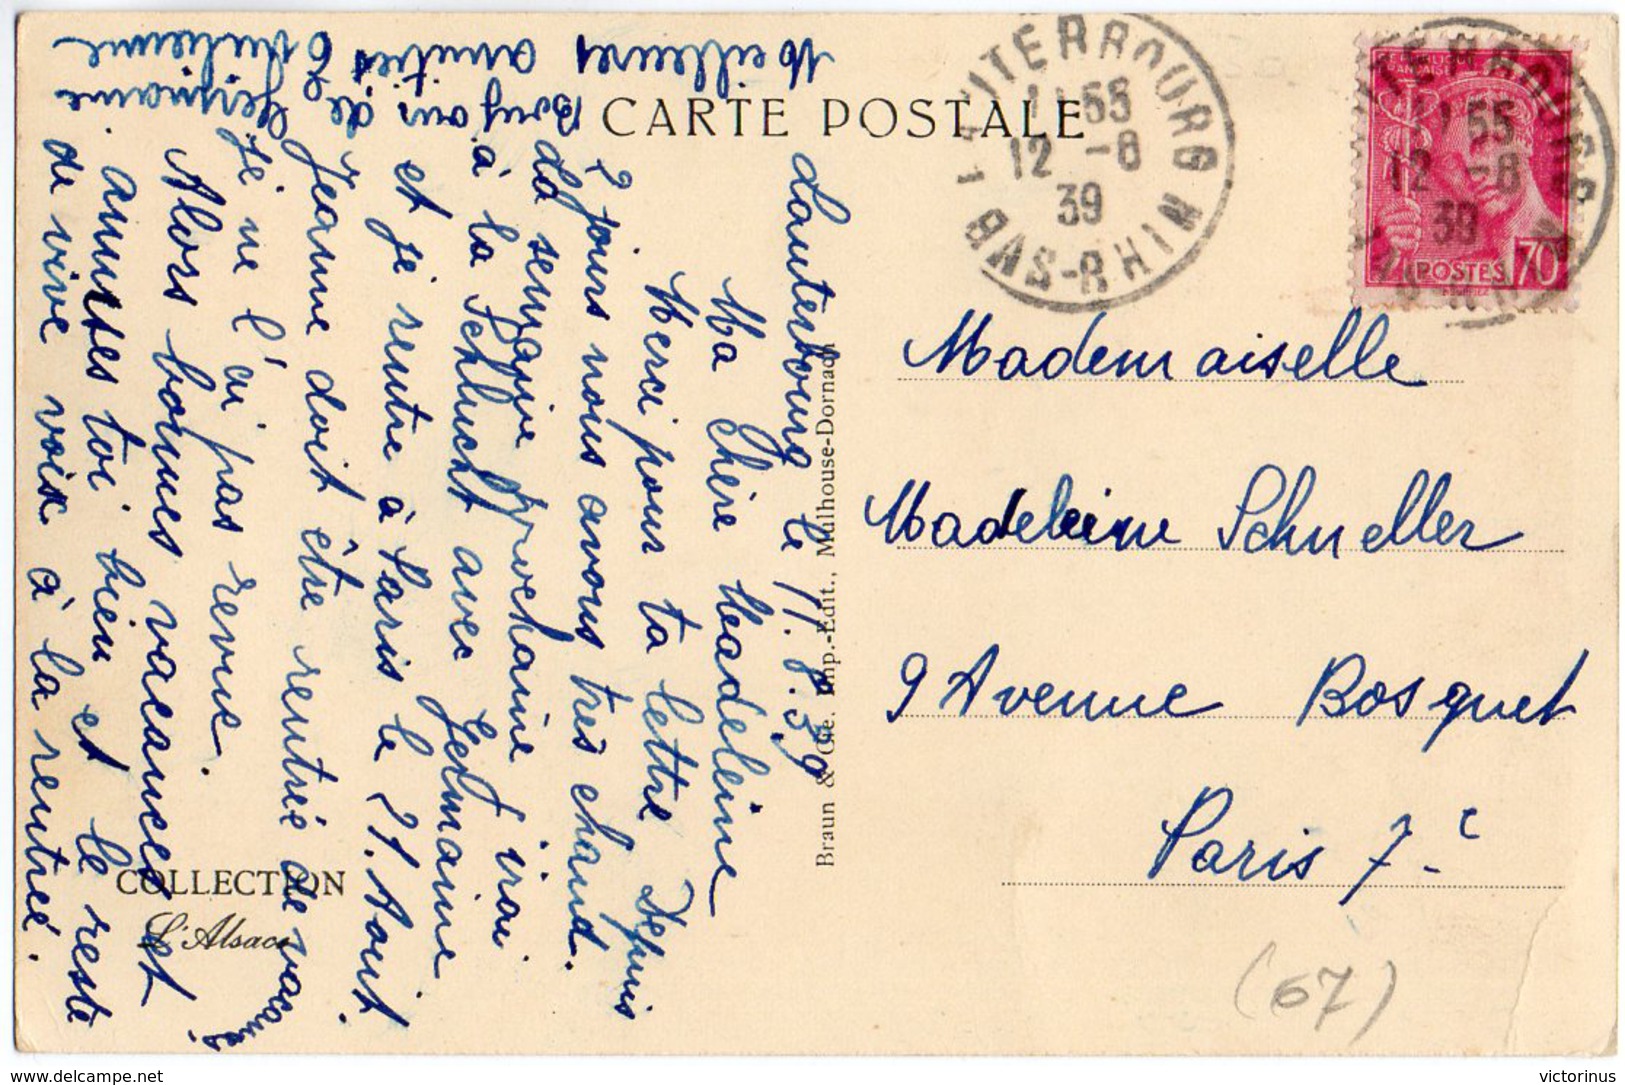 CARTE POSTALE
Lauterbourg le 11.8.39
Ma chère Madeleine
Merci pour ta lettre Depuis
2 jours nous avons très chaud.
La semaine prochaine j'irai
à la Schlucht avec Germaine
et je rentre à Paris le 21. Aout.
Jeanne doit être rentrée de vacances
je ne l'ai pas revue.
Alors bonnes vacances et
amuses toi bien et le reste
de vive voix à la rentrée.
Meilleures amitiés
Bonjour de Germaine
Braun & Cie. Imp.-Edit., Mulhouse-Dornach
COLLECTION
L'Alsace
LAUTERBOURG
11 55
12 -8
39
BAS-RHIN
LAUTERBOURG
11 55
12 -8
39
BAS-RHIN
REPUBLIQUE
FRANÇAISE
POSTES 70
Mademoiselle
Madeleine Schneller
9 Avenue Bosquet
Paris 7e
(67)
www.delcampe.net
victorinus